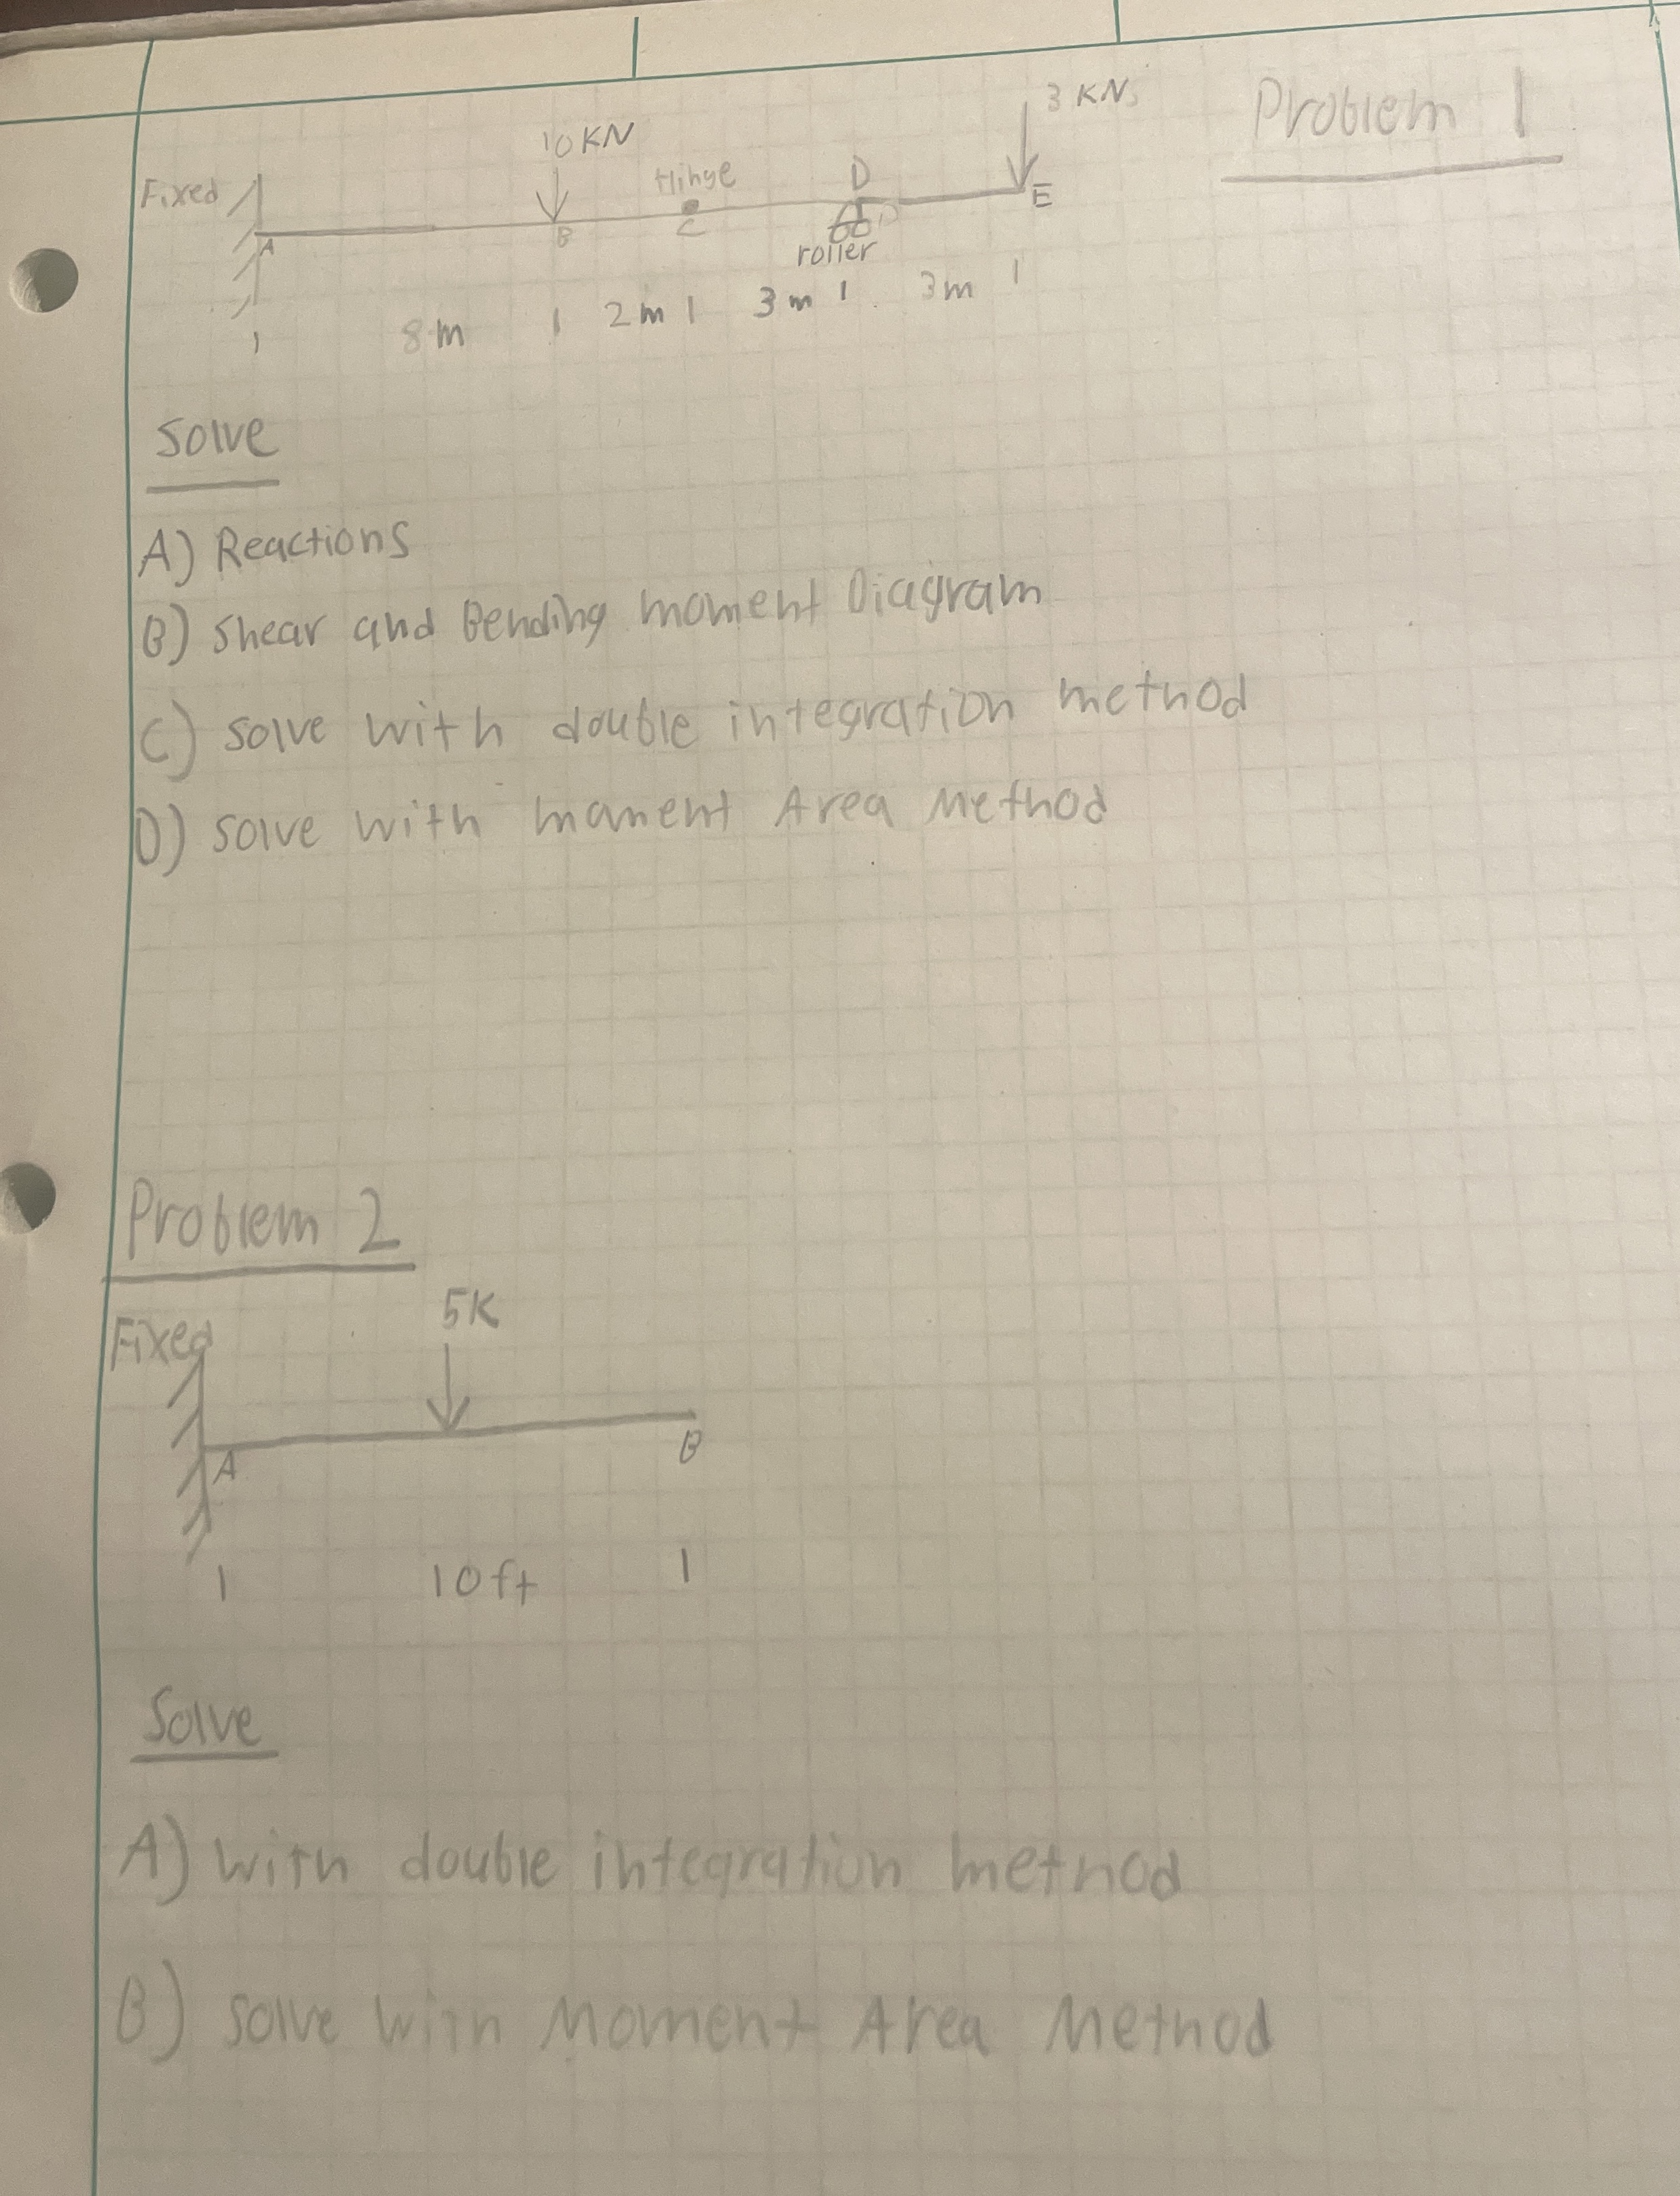 Problem 1
10 KN
3 KN
Fixed
Hinge
D
A
B
C
E
roller
8 m
2 m
3 m
3 m
Solve
A) Reactions
B) Shear and Bending moment Diagram
C) solve with double integration method
D) solve with moment Area Method
Problem 2
5K
Fixed
A
B
10 ft
Solve
A) with double integration method
B) solve with Moment Area Method